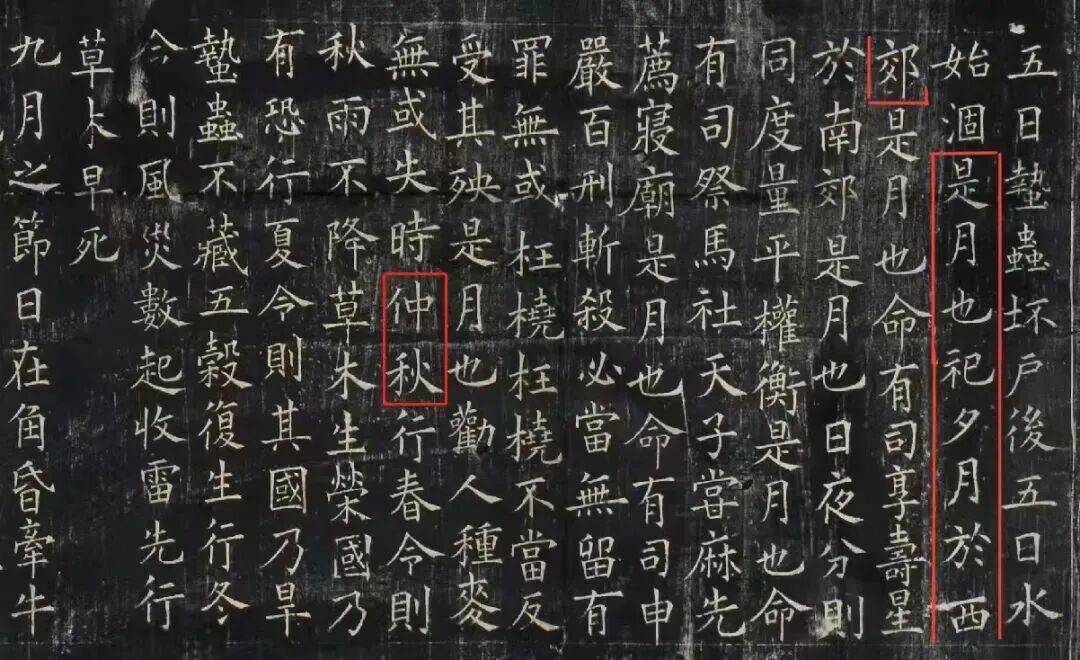 五日蟄蟲坏戸後五日水
始涸是月也祀夕月於西
郊是月也命有司享壽星
於南郊是月也日夜分則
同度量平權衡是月也命
有司祭馬社天子嘗麻先
薦寢廟是月也命有司申
嚴百刑斬殺必當無留有
罪無或枉橈枉橈不當反
受其殃是月也勸人種麥
無或失時仲秋行春令則
秋雨不降草木生榮國乃
有恐行夏令則其國乃旱
蟄蟲不藏五穀復生行冬
令則風災數起收雷先行
草木早死
九月之節日在角昏牽牛